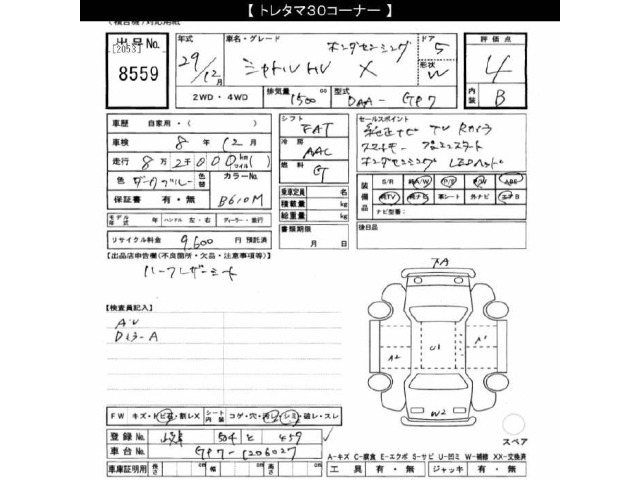 【 トレタマ30コーナー 】
(複合機)対応用紙
出品No.
[2053]
8559
年式
29/12月
車名・グレード
シャトルHV X
ホンダセンシング
ドア
5
形状
W
評価点
4
内装
B
2WD・4WD
排気量
1500 cc
型式
DAA-GP7
車歴 自家用・( )
車検 8年12月
走行 8万2千000km(マイル)( )
色 ダークブルー 色替 カラーNo.
保証書 有・無 B610M
モデル年式 年 ハンドル 左・右 ディーラー・並行
リサイクル料金 9,600円 預託済
シフト
FAT
冷房
AAC
燃料
G
乗車定員 名
積載量 kg
総重量 kg
書類期限
月 日
セールスポイント
純正ナビ TV Rカメラ
スマートキー プッシュスタート
ホンダセンシング LEDヘッド
装備品
S/R 純A/W P/S P/W ABS
純TV 純ナビ 革シート 外ナビ エアB
ナビ型番:
後日品
【出品店申告欄(不良箇所・欠品・注意事項等)】
ハーフレザーシート
【検査員記入】
A・U
Dミラ-A
FW キズ・トビ石・割レX シート内装 コゲ・穴・汚レ・シミ・破レ・スレ
登録No. 504 と 459
車台No. GP7-1206027
車庫証明用 長さ cm 幅 cm 高さ cm
下A
A2
U1
A1
W2
スペア
A-キズ C-腐食 E-エクボ S-サビ U-凹ミ W-補修 XX-交換済
工具 有・無 ジャッキ 有・無